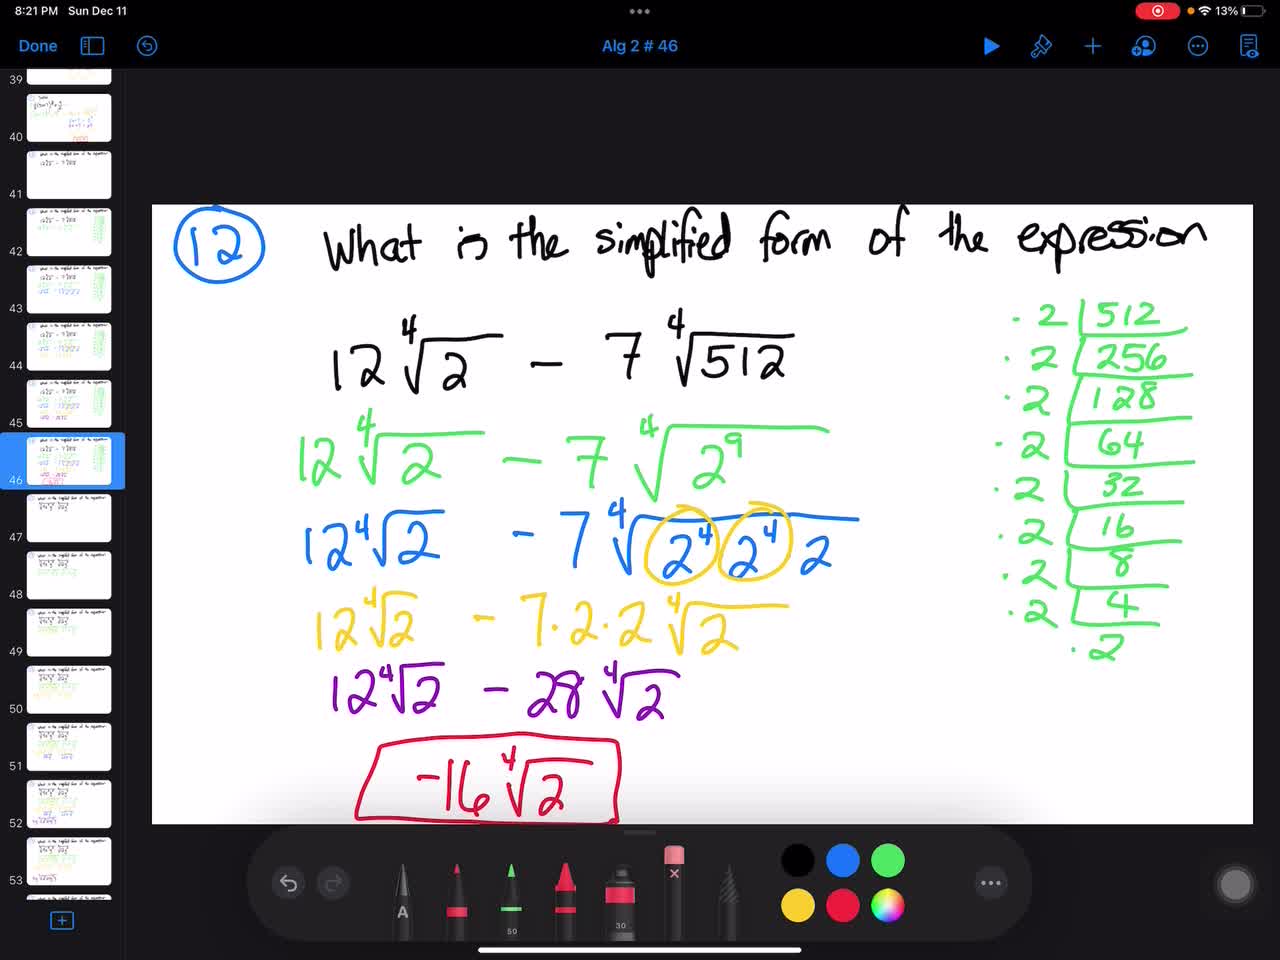 8:21 PM Sun Dec 11
13%
Done
Alg 2 # 46
39
40
41
42
43
44
45
46
47
48
49
50
51
52
53
12 What is the simplified form of the expression
12 ∜2 – 7 ∜512
12 ∜2 – 7 ∜2⁹
12 ∜2 – 7 ∜2⁴ 2⁴ 2
12 ∜2 – 7·2·2 ∜2
12 ∜2 – 28 ∜2
-16 ∜2
· 2 512
· 2 256
· 2 128
· 2 64
· 2 32
· 2 16
· 2 8
· 2 4
· 2
A
50
30